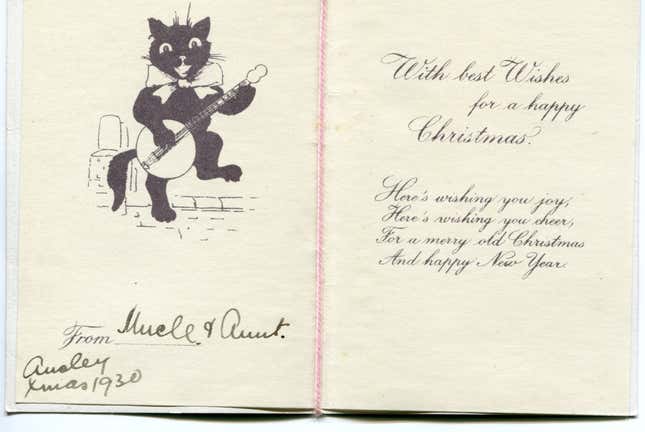 From Uncle & Aunt.
Ansley
Xmas 1930
With best Wishes
for a happy
Christmas.
Here's wishing you joy,
Here's wishing you cheer,
For a merry old Christmas
And happy New Year.